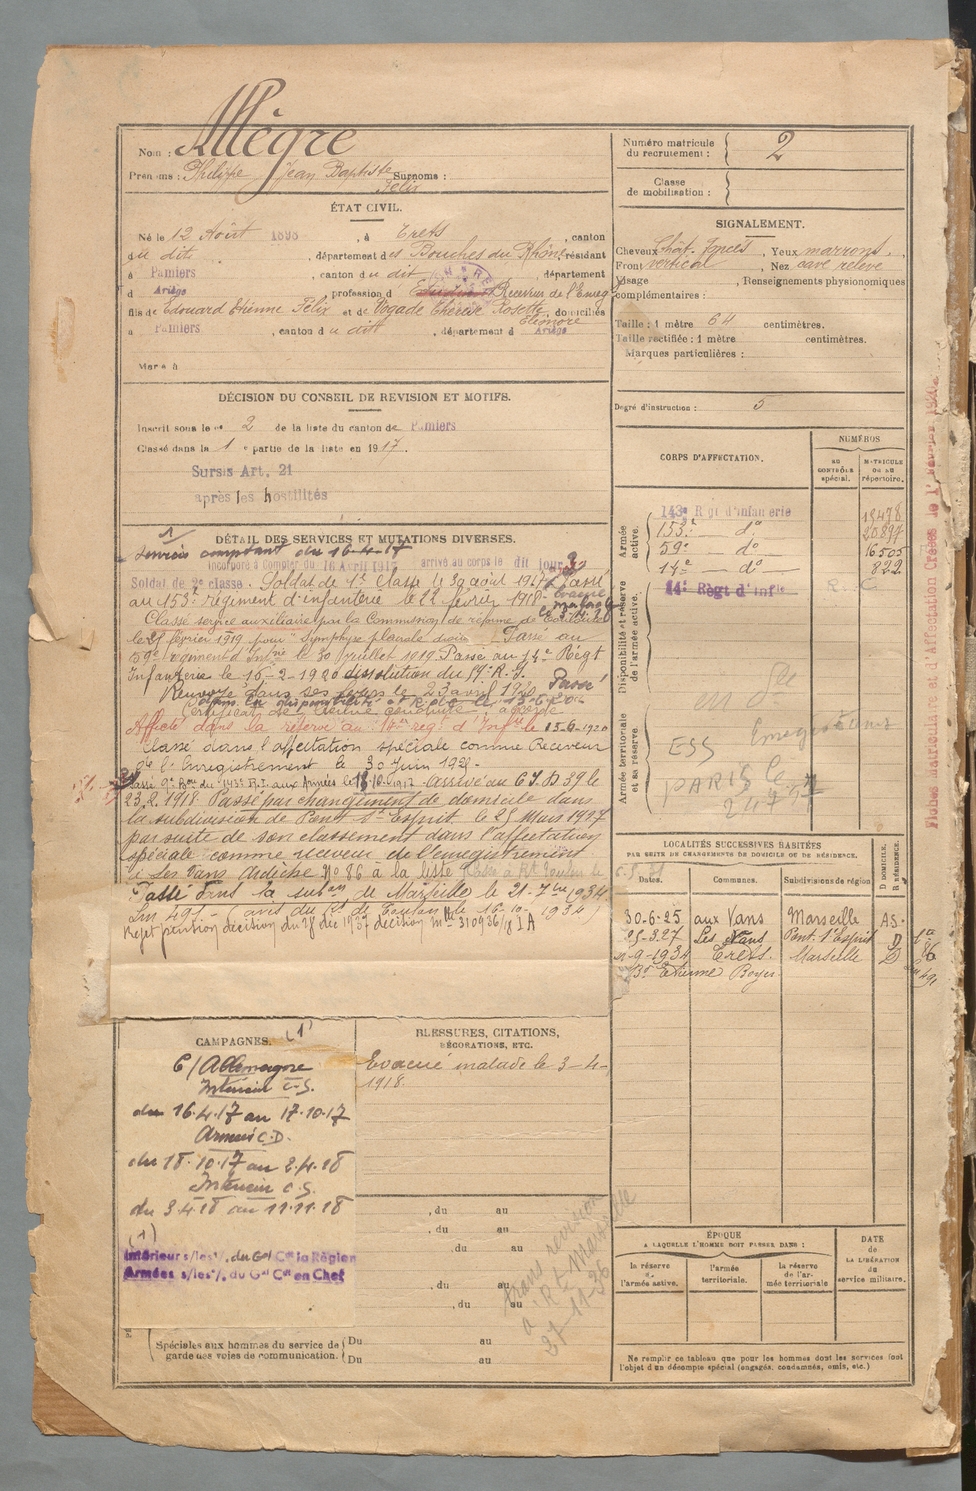 Nom : Allègre
Prénoms : Philippe Jean Baptiste Surnoms :
Félix
Numéro matricule du recrutement : 2
Classe de mobilisation :
ÉTAT CIVIL.
Né le 12 Août 1898, à Trets, canton
du dit, département des Bouches du Rhône, résidant
à Pamiers, canton du dit, département
d Ariège, profession d Receveur de l'Enreg
fils de Edouard Etienne Félix et de Vogade Thérèse Rosette, domiciliés
Eléonore
à Pamiers, canton du dit, département d Ariège
Marié à
SIGNALEMENT.
Cheveux Chât. foncés, Yeux marrons.
Front vertical, Nez cave relevé
Visage , Renseignements physionomiques
complémentaires :
Taille : 1 mètre 64 centimètres.
Taille rectifiée : 1 mètre centimètres.
Marques particulières :
Degré d'instruction : 5
DÉCISION DU CONSEIL DE REVISION ET MOTIFS.
Inscrit sous le n° 2 de la liste du canton de Pamiers
Classé dans la 1 e partie de la liste en 1917.
Sursis Art. 21
après les hostilités
CORPS D'AFFECTATION.
NUMÉROS
AU CONTRÔLE SPÉCIAL.
MATRICULE OU AU RÉPERTOIRE.
Armée active.
143e Rgt d'infanterie 18478
153e do 20897
59e do 16505
14e do 822
Disponibilité et réserve de l'armée active.
14e Règt d'Infie R. C
Armée territoriale et sa réserve
ESS Enregistrement
PARIS le
DÉTAIL DES SERVICES ET MUTATIONS DIVERSES.
Services comptant du 16-4-17
Incorporé à Compter du 16 Avril 1917 arrivé au corps le dit jour
Soldat de 2e classe. Soldat de 1e Classe le 30 août 1917 Passé
au 153e régiment d'infanterie le 22 février 1918 Evacué
malade
le 3-4-18
Classé service auxiliaire par la Commission de réforme de Toulouse
le 25 février 1919 pour "Symphyse pleurale droite" Passé au
59e régiment d'Infrie le 30 juillet 1919 Passé au 14e Régt
Infanterie le 16-2-1920 dissolution du 59e R.I.
Renvoyé dans ses foyers le 23 avril 1920 Passé
Certificat de bonne conduite accordé
Affecté dans la réserve au 14e rég t d'Infrie le 15-6-1920
Classé dans l'affectation spéciale comme Receveur
de l'Enregistrement le 30 Juin 1921.
Passé 9e Bon du 143e R.I. aux Armées le 18-10-1917 arrivé au C.I.D 39 le
23.2.1918. Passé par changement de domicile dans
la subdivision de Pont St Esprit le 25 Mars 1927
par suite de son classement dans l'affectation
spéciale comme receveur de l'enregistrement
à Les Vans Ardèche N° 86 à la liste
Passé dans la subon de Marseille le 21-7bre 1934
Lm 491. - avis du Rt de Toulon le 16-10-1934
Rejet pension décision du 28 déc 1937 décision Mle 310936/8 IA
LOCALITÉS SUCCESSIVES HABITÉES
PAR SUITE DE CHANGEMENTS DE DOMICILE OU DE RÉSIDENCE.
Dates. Communes. Subdivisions de région D DOMICILE. R RÉSIDENCE.
30-6-25 aux Vans Marseille A.S.
25-3.27 Les Vans Pont. St Esprit D
21-9-1934 Trets. Marseille D
Bd Etienne Boyer
86
Lm 491
CAMPAGNES. (1)
C/Allemagne
Intérieur C.S.
du 16.4.17 au 17.10.17
Armées C.D.
du 18.10.17 au 2.4.18
Intérieur C.S.
du 3.4.18 au 11.11.18
(1)
Intérieur s/les°/. du Gal Ct la Région
Armées s/les°/. du Gal Ct en Chef
BLESSURES, CITATIONS,
DÉCORATIONS, ETC.
Evacué malade le 3-4-
1918.
, du au
, du au
, du au
, du au
, du au
trans revision
à Rt Marseille
27-11-36
Spéciales aux hommes du service de garde des voies de communication. Du au
Du au
ÉPOQUE
A LAQUELLE L'HOMME DOIT PASSER DANS :
la réserve de l'armée active.
l'armée territoriale.
la réserve de l'armée territoriale
DATE de LA LIBÉRATION du service militaire.
Ne remplir ce tableau que pour les hommes dont les services font
l'objet d'un décompte spécial (engagés, condamnés, omis, etc.)
Fiches Matriculaire et d'Affectation Créées le 1er Février